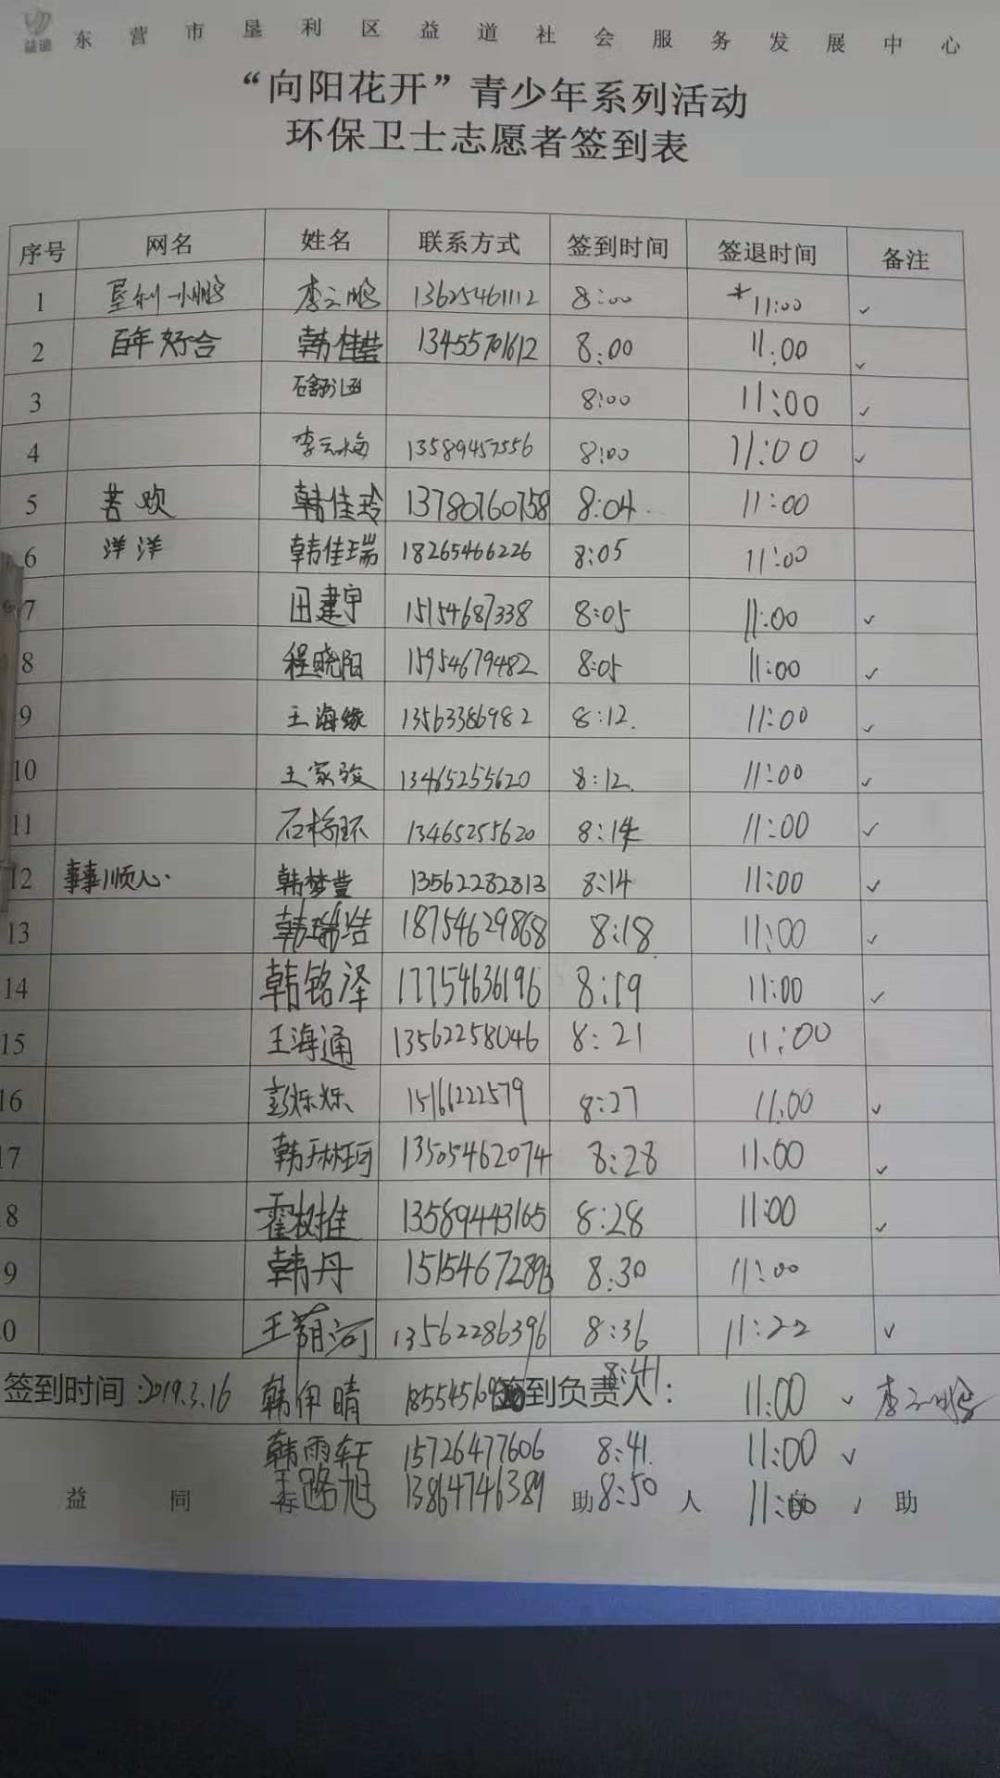 益道
东营市垦利区益道社会服务发展中心
“向阳花开”青少年系列活动
环保卫士志愿者签到表
序号 网名 姓名 联系方式 签到时间 签退时间 备注
1 垦利小鹏 李云鹏 13625461112 8:00 *11:00 ✓
2 百年好合 韩佳莹 13455701612 8:00 11:00 ✓
3 8:00 11:00 ✓
4 李云梅 13589457556 8:00 11:00 ✓
5 苦欢 韩佳玲 13780760758 8:04 11:00
6 洋洋 韩佳瑞 18265466226 8:05 11:00
7 田建宇 15154687338 8:05 11:00 ✓
8 程晓阳 15954679482 8:05 11:00 ✓
9 王海缘 13563386982 8:12 11:00 ✓
10 王家骏 13465255620 8:12 11:00 ✓
11 13465255620 8:14 11:00 ✓
12 事事顺心 韩梦莹 13562282813 8:14 11:00 ✓
13 韩瑞浩 18754629868 8:18 11:00 ✓
14 韩铭泽 17754636196 8:19 11:00 ✓
15 王海通 13562258046 8:21 11:00
16 彭烁烁 1516622579 8:27 11:00 ✓
17 韩林珂 13505462074 8:28 11:00 ✓
8 霍树推 13589443165 8:28 11:00 ✓
9 韩丹 8:30 11:00
0 王葫河 13562286396 8:36 11:22 ✓
签到时间:2019.3.16 韩伊晴 签到负责人: 8:41 11:00 ✓ 李云鹏
韩雨轩 15726477606 8:41 11:00 ✓
益同 路旭 13864746389 助 8:50 人 11:00 自 ✓ 助